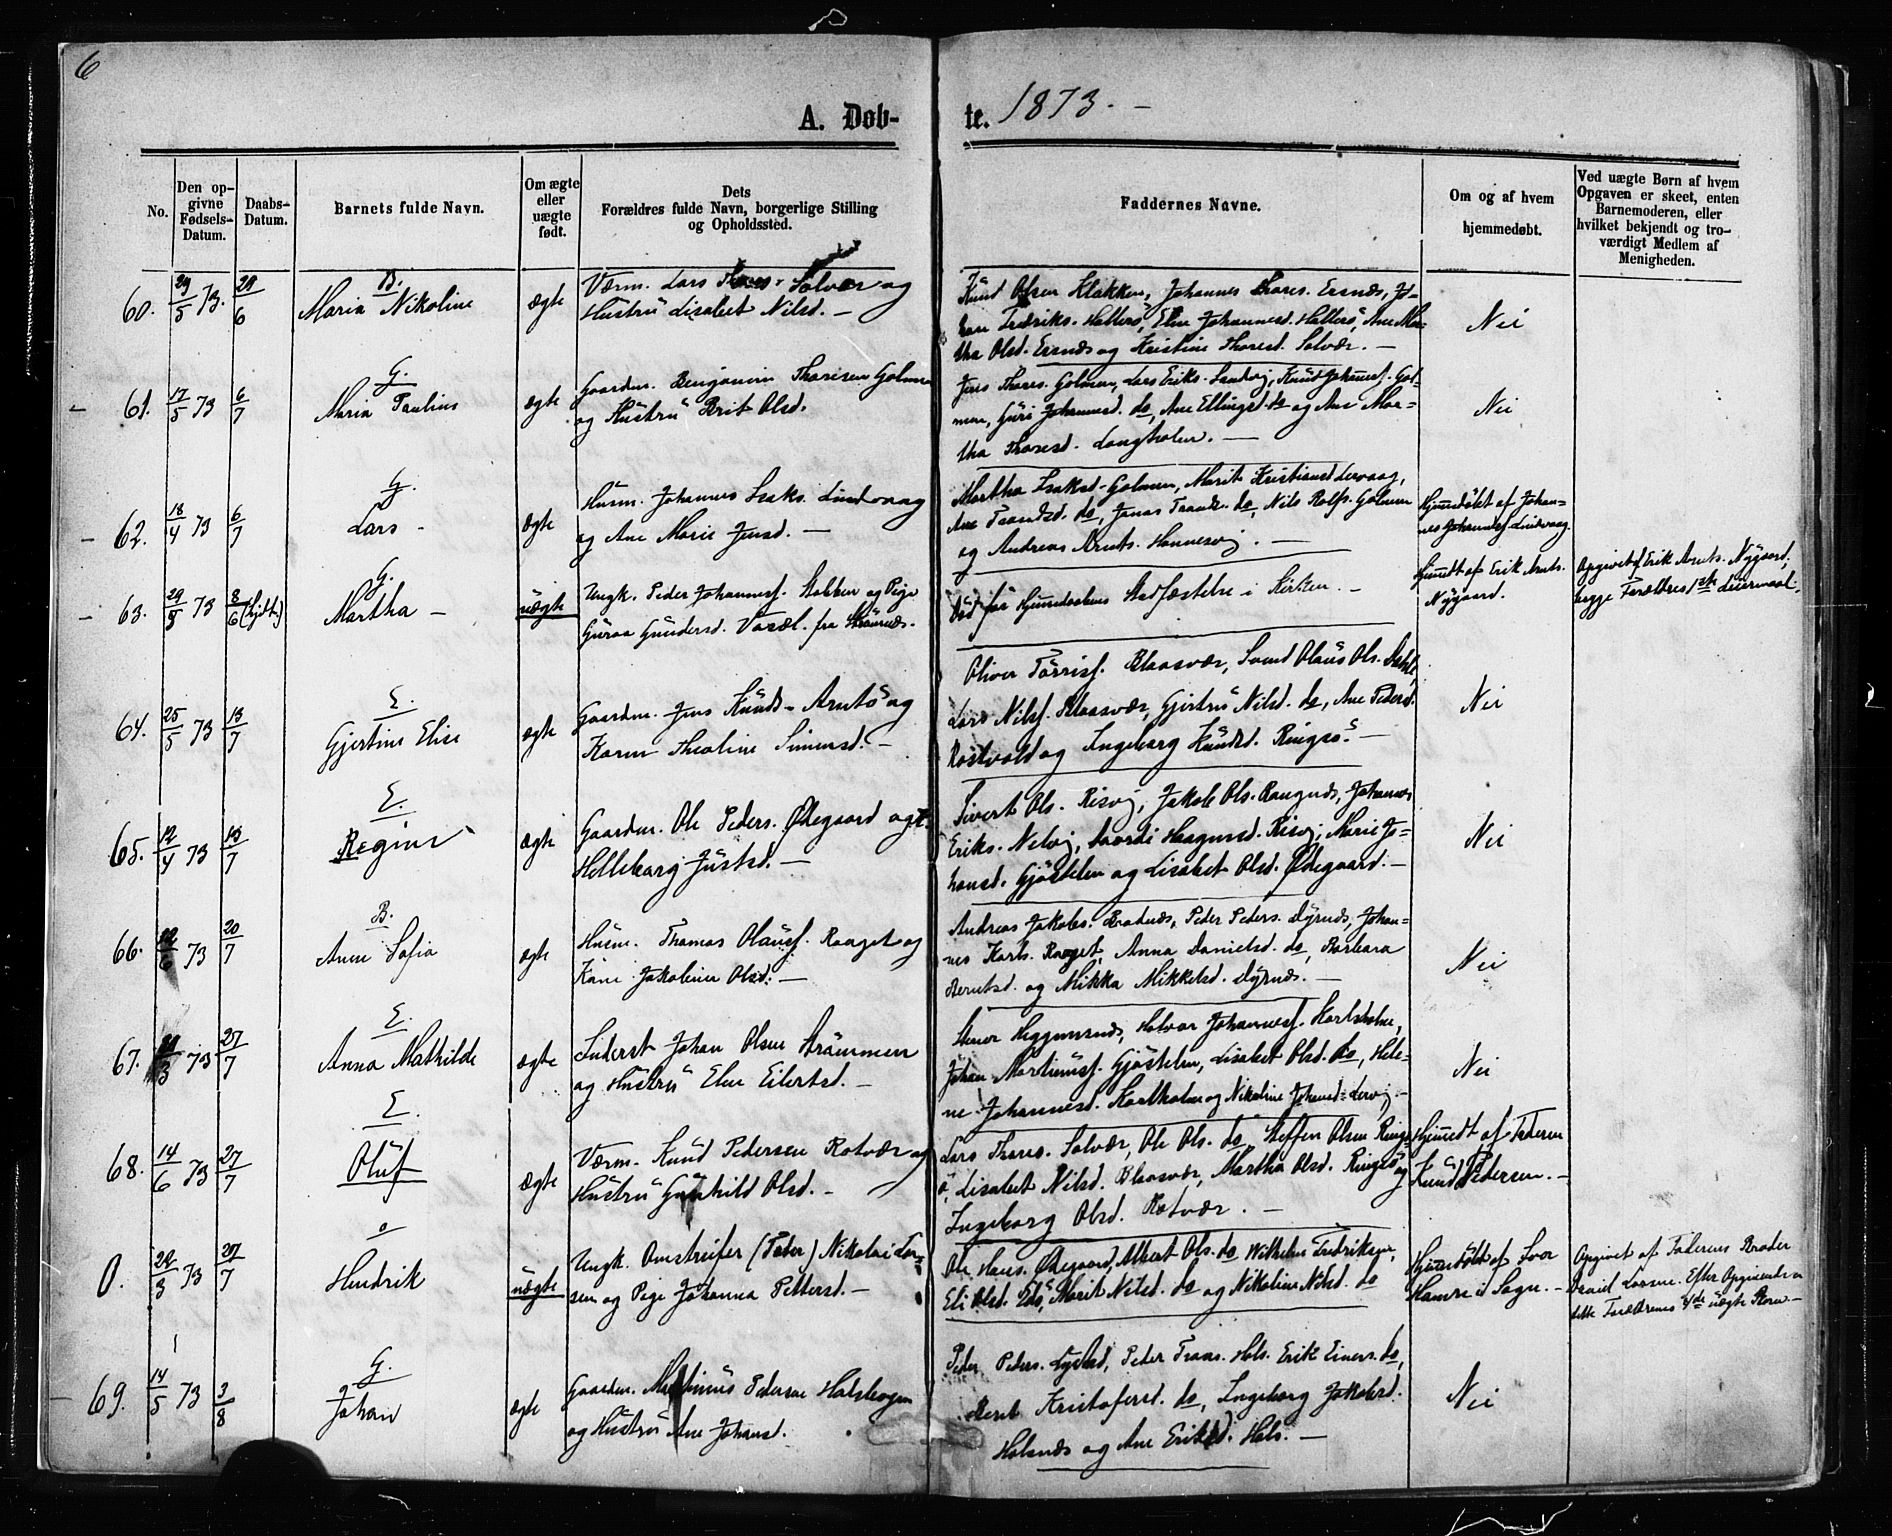 6
A. Døb-
te. 1873. -
No.
Den op-
givne
Fødsels-
Datum.
Daabs-
Datum.
Barnets fulde Navn.
Om ægte
eller
uægte
født.
Dets
Forældres fulde Navn, borgerlige Stilling
og Opholdssted.
Faddernes Navne.
Om og af hvem
hjemmedøbt.
Ved uægte Børn af hvem
Opgaven er skeet, enten
Barnemoderen, eller
hvilket bekjendt og tro-
værdigt Medlem af
Menigheden.
60. 29/5 73. 28/6
B.
Maria Nikoline
ægte
Værm. Lars Solvær og
Hustru Lisabet Nilsd. -
Knud Olsen Klakken, Johannes Thores. Ersnæs, Jo-
han Fredriks. Hallerö, Elen Johannesd. Hallerö, Ane Mar-
tha Olsd. Ersnæs og Kristine Thoresd. Solvær. -
Nei
61. 17/5 73 6/7
G.
Maria Paulins
ægte
Gaardm. Benjamin Thoresen Golmen
og Hustru Brit Olsd.
Jens Thores. Golmen, Lars Eriks. Sandvig, Knud Johannesf. Gol-
men, Guri Johannesd. do, Ane Ellingsd. do og Ane Mar-
tha Thoresd. Langholen. -
Nei
62. 18/4 73 6/7
G.
Lars -
ægte
Husm. Johannes Isaks. Lindvaag
og Ane Marie Jensd. -
Martha Isaksd. Golmen, Marit Kristiansd. Lervaag,
Ane Trondsd. do, Jonas Tronds. do, Nils Rolfs. Golmen
og Andreas Arnts. Hannesvig. -
Hjemdøbt af Johan-
nes Johannesf. Lindvaag.
63. 29/5 73 8/6 (Hjdt.)
G.
Martha -
uægte
Ungk. Peder Johannesf. Stabben og Pige
Guroa Gundersd. fra
Død før Hjemdaabens Stadfæstelse i Kirken. -
Hjemdt af Erik Arnts.
Nygaard.
Opgivet af Erik Arnts. Nygaard,
begge Forældres 1ste Leiermaal.
64. 25/5 73 13/7
E.
Gjertine Elise
ægte
Gaardm. Jens Knuds. Arntö og
Karen Theoline Simensd. -
Oliver Torrisf. Blaasvær, Svend Olaus Ols.
Lars Nilsf. Blaasvær, Gjertru Nilsd. do, Ane Pedersd.
Röstvold og Ingeborg Knudsd. Ringsö. -
Nei
65. 12/4 73 13/7
E.
Regine
ægte
Gaardm. Ole Peders. Ødegaard og
Helleborg Justsd. -
Sivert Ols. Risvig, Jakob Ols. Rangnæs, Johannes
Eriks. Nelvig, Haagensd. Risvig, Marie Jo-
hansd. Gjöstelen og Lisabet Olsd. Ødegaard. -
Nei
66. 12/6 73 20/7
B.
Anne Sofia
ægte
Husm. Thomas Olausf. Roaget og
Kone Jakobine Olsd. -
Andreas Jakobs. Bratnæs, Peder Peders. Dyrnæs, Johan-
nes Karls. Roaget, Anna Danielsd. do, Barbara
Berntsd. og Mikka Mikkelsd. Dyrnæs. -
Nei
67. /3 73 27/7
E.
Anna Mathilde
ægte
Inderst Johan Olsen Strömmen
og Hustru Elen Eilertsd. -
Stener Heggemsnæs, Halvor Johannesf. Korsholm,
Johan Martinusf. Gjöstelen, Lisabet Olsd. do, Hele-
ne Johannesd. Korsholm og Nikoline Johansd. Lervig. -
Nei
68. 14/6 73 27/7
E.
Oluf
ægte
Værm. Knud Pedersen Rotvær og
Hustru Gunhild Olsd. -
Lars Thores. Solvær, Ole Ols. do, Steffen Olsen Rings-
ö, Lisabet Nilsd. Blaasvær, Martha Olsd. Ringsö og
Ingeborg Olsd. Rotvær. -
Hjemdt af Faderen
Knud Pedersen. -
0. 22/3 73 27/7
o
Hendrik
uægte
Ungk. Omstreifer (Tater) Nikolai Lar-
sen og Pige Johanna Pettersd. -
Ole Hans. Ødegaard, Albert Ols. do, Wilhelm Fredriksen,
Eli Olsd. Edö, Marit Nilsd. do og Nikoline Nilsd. do
Hjemdöbt af Ivar
Hamre i Sogn. -
Opgivet af Faderens Broder
David Larsen. Efter Opgivende er
dette Forældrenes 4de uægte Barn -
69. 14/5 73 3/8
G.
Johan
ægte
Gaardm. Martinus Pedersen Halshagen
og Hustru Ane Johansd.
Peder Peders. Lystad, Peder Frans. Hals. Erik Einers. do,
Beret Kristofersd. do, Ingeborg Jakobsd.
Halsnæs og Ane Eriksd. Hals. -
Nei